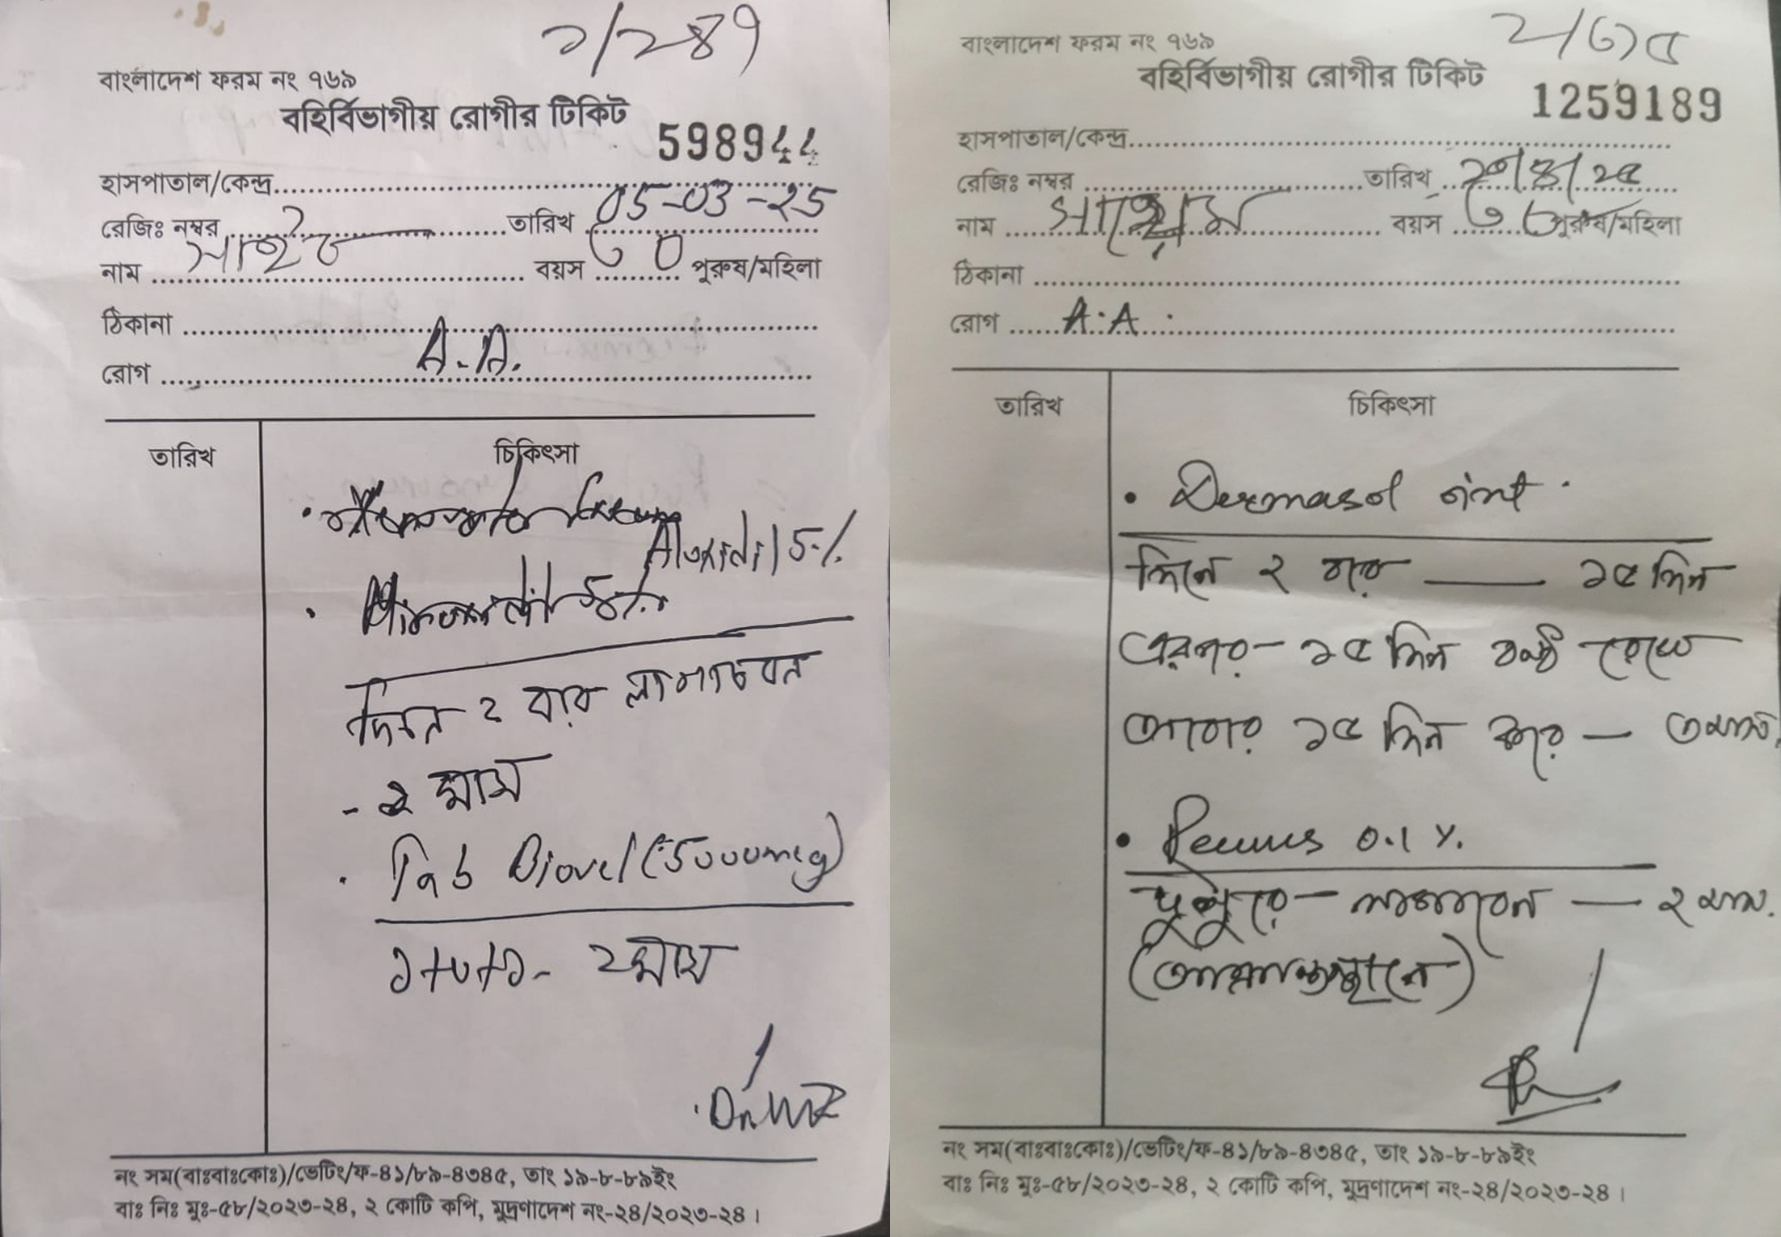 ২/287
বাংলাদেশ ফরম নং ৭৬৯
বহির্বিভাগীয় রোগীর টিকিট
598944
হাসপাতাল/কেন্দ্র
রেজিঃ নম্বর তারিখ 05-03-25
নাম বয়স ৩০ পুরুষ/মহিলা
ঠিকানা
রোগ A.A.
তারিখ চিকিৎসা
5%
দিনে ২ বার লাগাবেন
- ২ মাস
Tab (5000mcg)
১+০+১- ২ মাস
নং সম(বাঃবাঃকোঃ)/ভেটিং/ফ-৪১/৮৯-৪৩৪৫, তাং ১৯-৮-৮৯ইং
বাঃ নিঃ মুঃ-৫৮/২০২৩-২৪, ২ কোটি কপি, মুদ্রণাদেশ নং-২৪/২০২৩-২৪।
বাংলাদেশ ফরম নং ৭৬৯
বহির্বিভাগীয় রোগীর টিকিট
1259189
হাসপাতাল/কেন্দ্র
রেজিঃ নম্বর তারিখ
নাম বয়স পুরুষ/মহিলা
ঠিকানা
রোগ A.A.
তারিখ চিকিৎসা
• Dermasol oint.
দিনে ২ বার — ১৫ দিন
এরপর- ১৫ দিন বন্ধ রেখে
আবার ১৫ দিন করে — ৩ মাস.
• 0.1%.
দুপুরে- লাগাবেন — ২ মাস.
(আক্রান্তস্থানে)
নং সম(বাঃবাঃকোঃ)/ভেটিং/ফ-৪১/৮৯-৪৩৪৫, তাং ১৯-৮-৮৯ইং
বাঃ নিঃ মুঃ-৫৮/২০২৩-২৪, ২ কোটি কপি, মুদ্রণাদেশ নং-২৪/২০২৩-২৪।